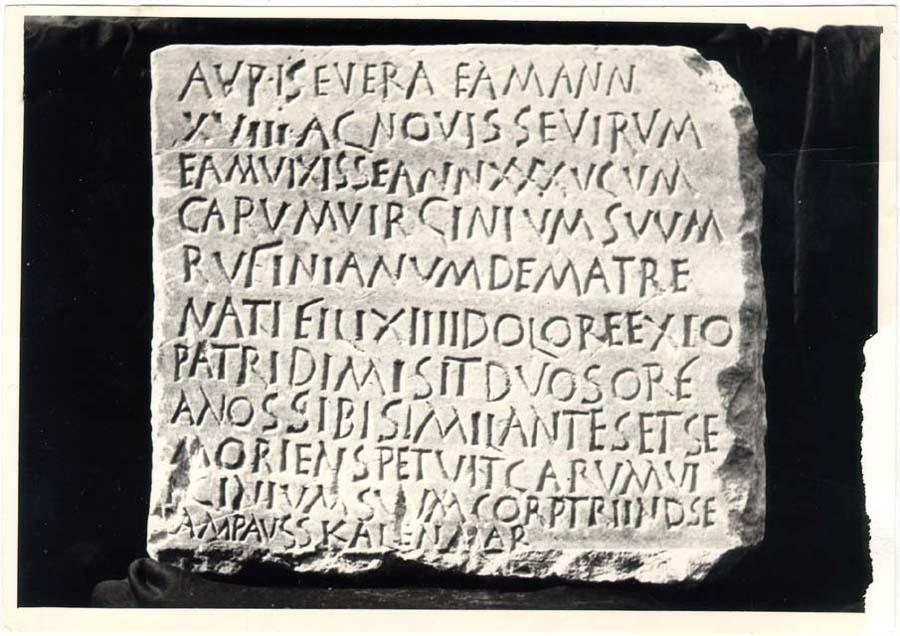 AVP·ISEVERA EAMANN
XVIIII·ACNOVISSEVIRVM
EAMVIXISSEANNXXXVCVM
CARVMVIRCINIVMSVVM
RVFINIANVMDEMATRE
NATIFILIXIIIIDOLOREEXIO
PATRIDIMISITDVOSORE
ANOSSIBISIMILANTESETSE
MORIENSPETVITCARVMVI
RCINIVMSVVMCORPTRIINDSE
AMPAVSSKALENMAR